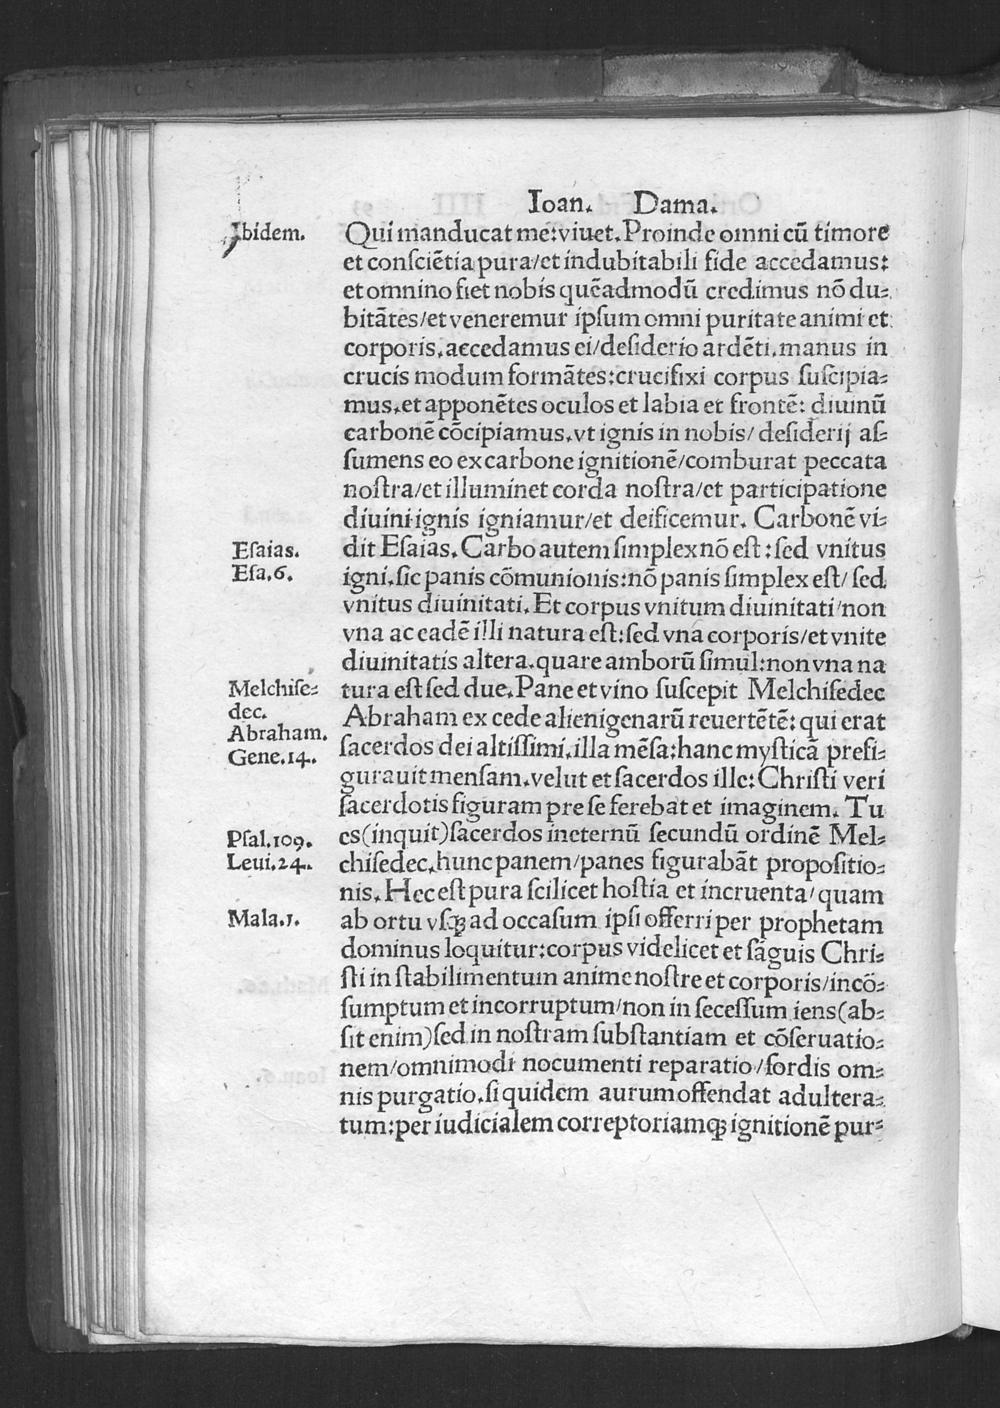 Ioan. Dama.
Ibidem.
Qui manducat me:viuet.Proinde omni cũ timore
et conſciẽtia pura/et indubitabili fide accedamus:
et omnino fiet nobis quẽadmodũ credimus nõ du⸗
bitãtes/et veneremur ipſum omni puritate animi et
corporis.accedamus ei/deſiderio ardẽti.manus in
crucis modum formãtes:crucifixi corpus ſuſcipia⸗
mus.et apponẽtes oculos et labia et frontẽ: diuinũ
carbonẽ cõcipiamus.vt ignis in nobis/ deſiderij aſ⸗
ſumens eo ex carbone ignitionẽ/comburat peccata
noſtra/et illuminet corda noſtra/et participatione
diuini ignis igniamur/et deificemur. Carbonẽ vi⸗
Eſaias.
Eſa.6.
dit Eſaias.Carbo autem ſimplex nõ eſt:ſed vnitus
igni.ſic panis cõmunionis:nõ panis ſimplex eſt/ ſed
vnitus diuinitati.Et corpus vnitum diuinitati/non
vna ac eadẽ illi natura eſt:ſed vna corporis/et vnite
diuinitatis altera.quare amborũ ſimul:non vna na
Melchiſe⸗
dec.
Abraham.
Gene.14.
tura eſt ſed due.Pane et vino ſuſcepit Melchiſedec
Abraham ex cede alienigenarũ reuertẽtẽ: qui erat
ſacerdos dei altiſſimi.illa mẽſa:hanc myſticã prefi⸗
gurauit menſam.velut et ſacerdos ille:Chriſti veri
ſacerdotis figuram pre ſe ferebat et imaginem. Tu
Pſal.109.
Leui.24.
es(inquit)ſacerdos ineternũ ſecundũ ordinẽ Mel⸗
chiſedec.hunc panem/panes figurabãt propoſitio⸗
nis.Hec eſt pura ſcilicet hoſtia et incruenta/ quam
Mala.1.
ab ortu vſq̃ ad occaſum ipſi offerri per prophetam
dominus loquitur:corpus videlicet et ſãguis Chri⸗
ſti in ſtabilimentum anime noſtre et corporis/incõ⸗
ſumptum et incorruptum/non in ſeceſſum iens(ab⸗
ſit enim)ſed in noſtram ſubſtantiam et cõſeruatio⸗
nem/omnimodi nocumenti reparatio/ſordis om⸗
nis purgatio.ſi quidem aurum offendat adultera⸗
tum:per iudicialem correptoriamq̃ ignitionẽ pur⸗